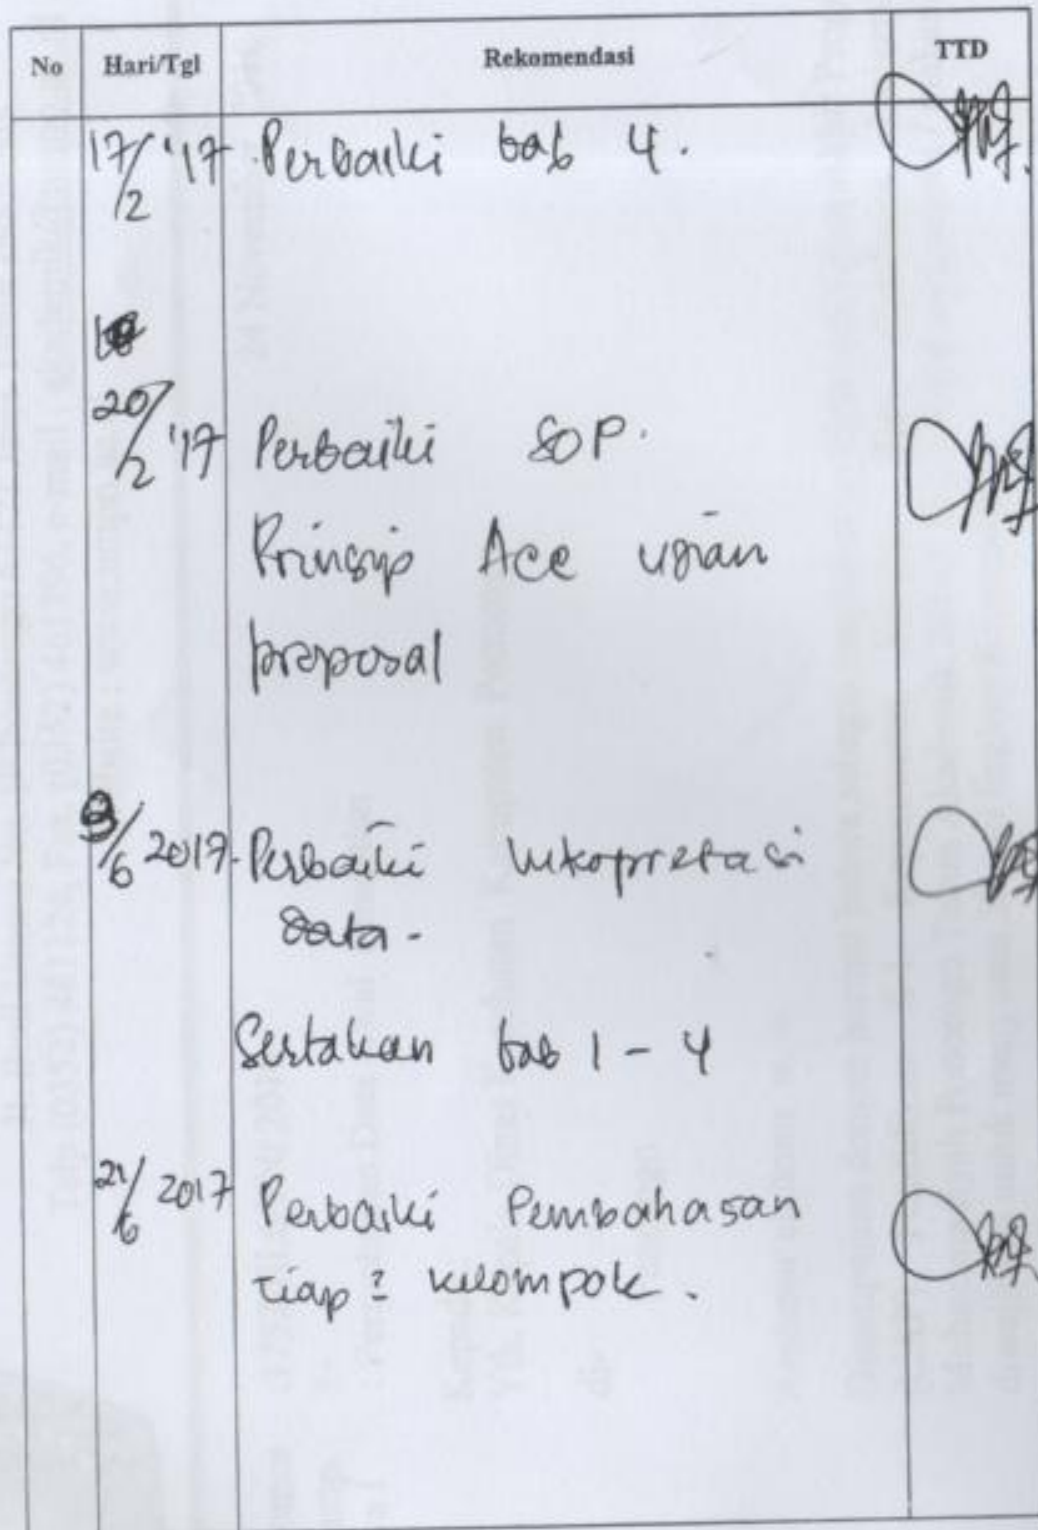 No Hari/Tgl Rekomendasi TTD
17/2 '17 Perbaiki bab 4.
20/2 '17 Perbaiki SOP.
Prinsip Acc ujian
proposal
9/6 2017 Perbaiki interpretasi
data -
Sertakan bab 1 - 4
21/6 2017 Perbaiki Pembahasan
tiap2 kelompok.